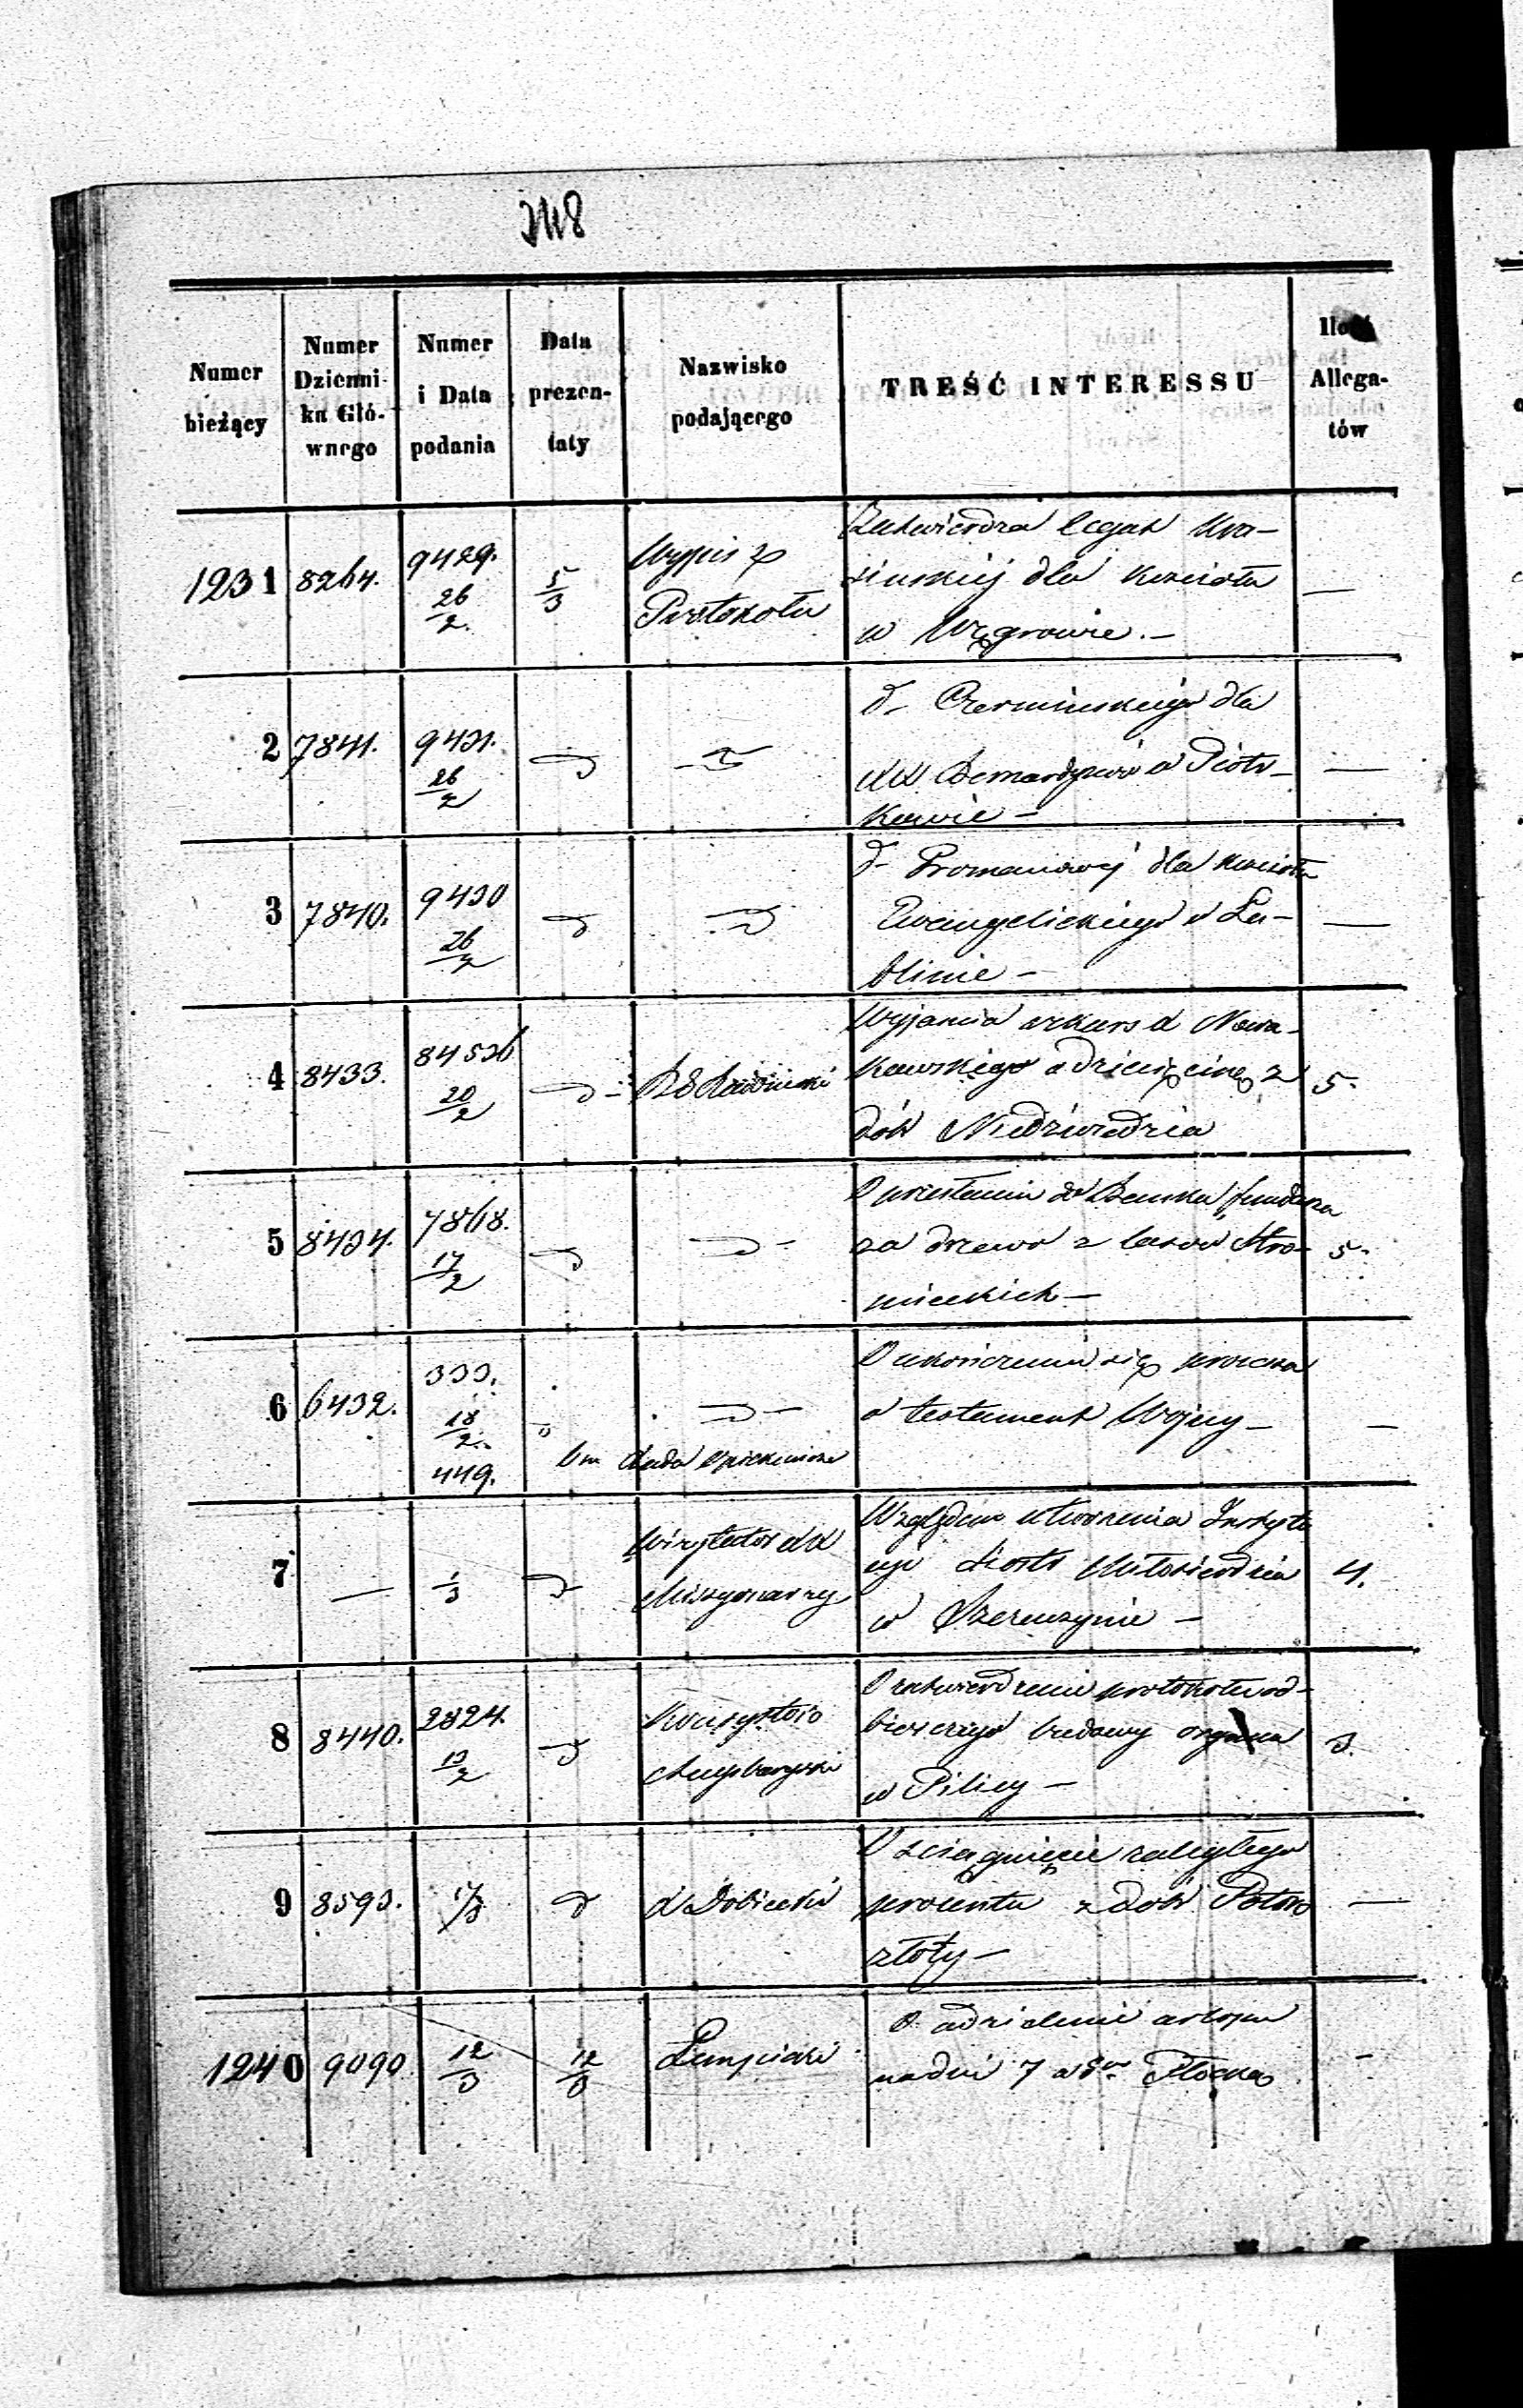 348
Numer bieżący
Numer Dziennika Głównego
Numer i Data podania
Data prezentaty
Nazwisko podającego
TREŚĆ INTERESSU
Ilość Allegatów
1231 8264. 9429. 26/2. 5/3 Wypis z Protokołu
Zatwierdza legat Kra-
sińskiej dla kościoła —
w Węgrowie. —
2 7841. 9431. 26/2
d- Czermińskiego dla
XX Bernardynów w Piotr- —
kowie —
3 7840. 9430 26/2
d- Promanowej dla kościoła
Ewangelickiego w Lu- —
blinie —
4 8433. 20/2
Wyjaśnia X Nowa-
kowskiego o dziesięcinę z 5.
dóbr Niedźwiedzia
5 8434. 7868. 17/2
O przesłaniu do Banku
za drzewo z lasów 5.
6 6432. 333. 18/2. 449.
O ukończeniu się procesu
o testament Wojny — —
Rada Opiekuńcza
7 — 1/3 Wizytator XX Missyonarzy
Względem utworzenia Instytu
cyi Siostr Miłosierdzia 4.
w Szczuczynie —
8 8440. 2324. 13/2 Konsystorz Augsburgski
O zatwierdzenie protokołu od-
biorczego budowy organa 3.
w Pilicy —
9 8593. X Dobiecki
O ściągnięcie zaległego
procentu z dóbr Potok —
złoty —
1240 9090 12/3 12/3
O udzielenie urlopu
na dni 7 do Płocka —